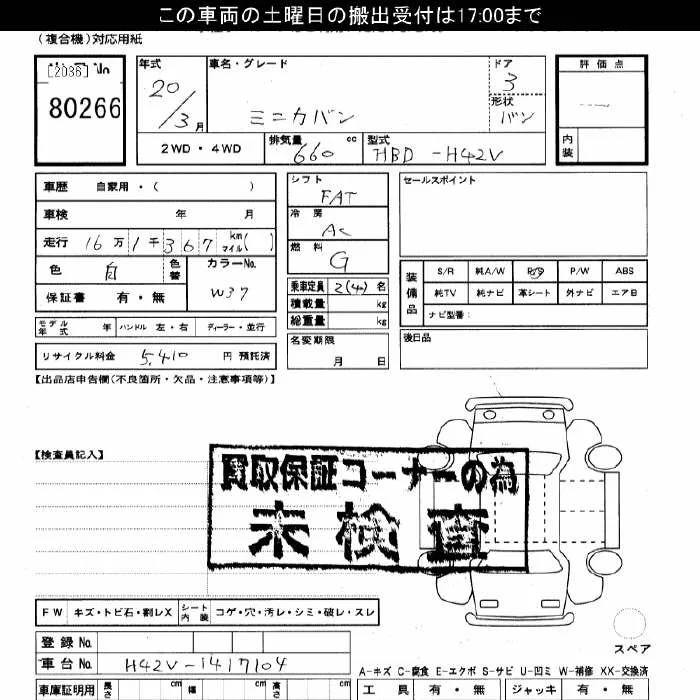 この車両の土曜日の搬出受付は17:00まで
(複合機)対応用紙
[2036] No
80266
年式
20/3月
車名・グレード
ミニカバン
ドア
3
形状
バン
評価点
内装
2WD・4WD
排気量
660 cc
型式
HBD-H42V
車歴 自家用・( )
車検 年 月
走行 16万1千367 km マイル( )
色 白
色替
カラーNo.
W37
保証書 有・無
シフト
FAT
冷房
AC
燃料
G
乗車定員 2(4)名
積載量 kg
総重量 kg
セールスポイント
装備品
S/R 純A/W P/S P/W ABS
純TV 純ナビ 革シート 外ナビ エアB
ナビ型番:
モデル年式 年 ハンドル 左・右 ディーラー・並行
名変期限
月 日
後日品
リサイクル料金 5,410 円 預託済
【出品店申告欄(不良箇所・欠品・注意事項等)】
【検査員記入】
買取保証コーナーの為
未検査
FW キズ・トビ石・割レX シート内装 コゲ・穴・汚レ・シミ・破レ・スレ
登録No.
車台No. H42V-1417104
スペア
A-キズ C-腐食 E-エクボ S-サビ U-凹ミ W-補修 XX-交換済
車庫証明用 長さ cm 幅 cm 高さ cm
工具 有・無 ジャッキ 有・無